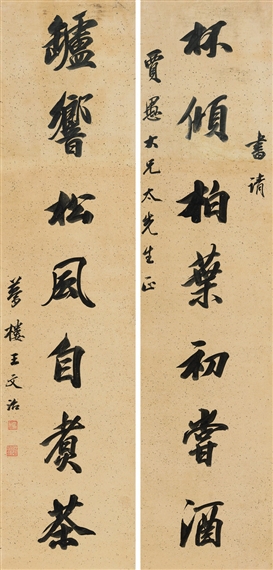 書請
杯傾柏葉初嘗酒
賈愚大兄太先生正
罏響松風自煮茶
夢樓王文治